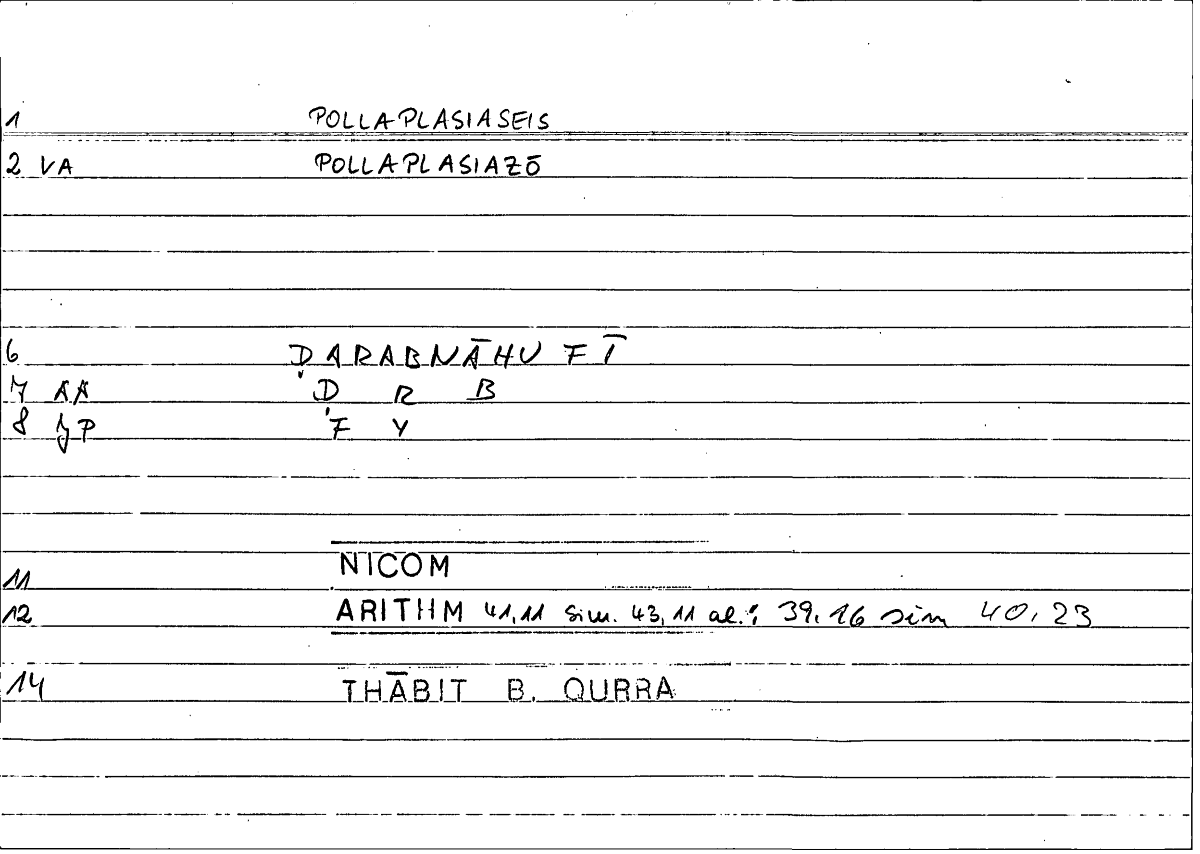 1 POLLAPLASIASEIS
2 VA POLLAPLASIAZŌ
6 ḌARABNĀHU FĪ
7 AA Ḍ R B
8 JP F Y
11 NICOM
12 ARITHM 41,11 sim. 43,11 al.: 39,16 sim 40,23
14 THĀBIT B. QURRA